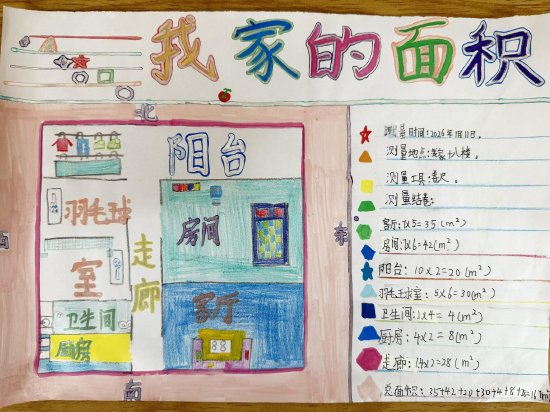 我家的面积
北
西
东
南
阳台
羽毛球
室
走廊
房间
客厅
88
卫生间
厨房
测量时间:2026年1月11日。
测量地点:我家十八楼。
测量工具:卷尺。
测量结果:
客厅:7x5=35(m²)
房间:7x6=42(m²)
阳台:10x2=20(m²)
羽毛球室:5x6=30(m²)
卫生间:1x4=4(m²)
厨房:4x2=8(m²)
走廊:14x2=28(m²)
总面积:35+42+20+30+4+8+28=167(m²)